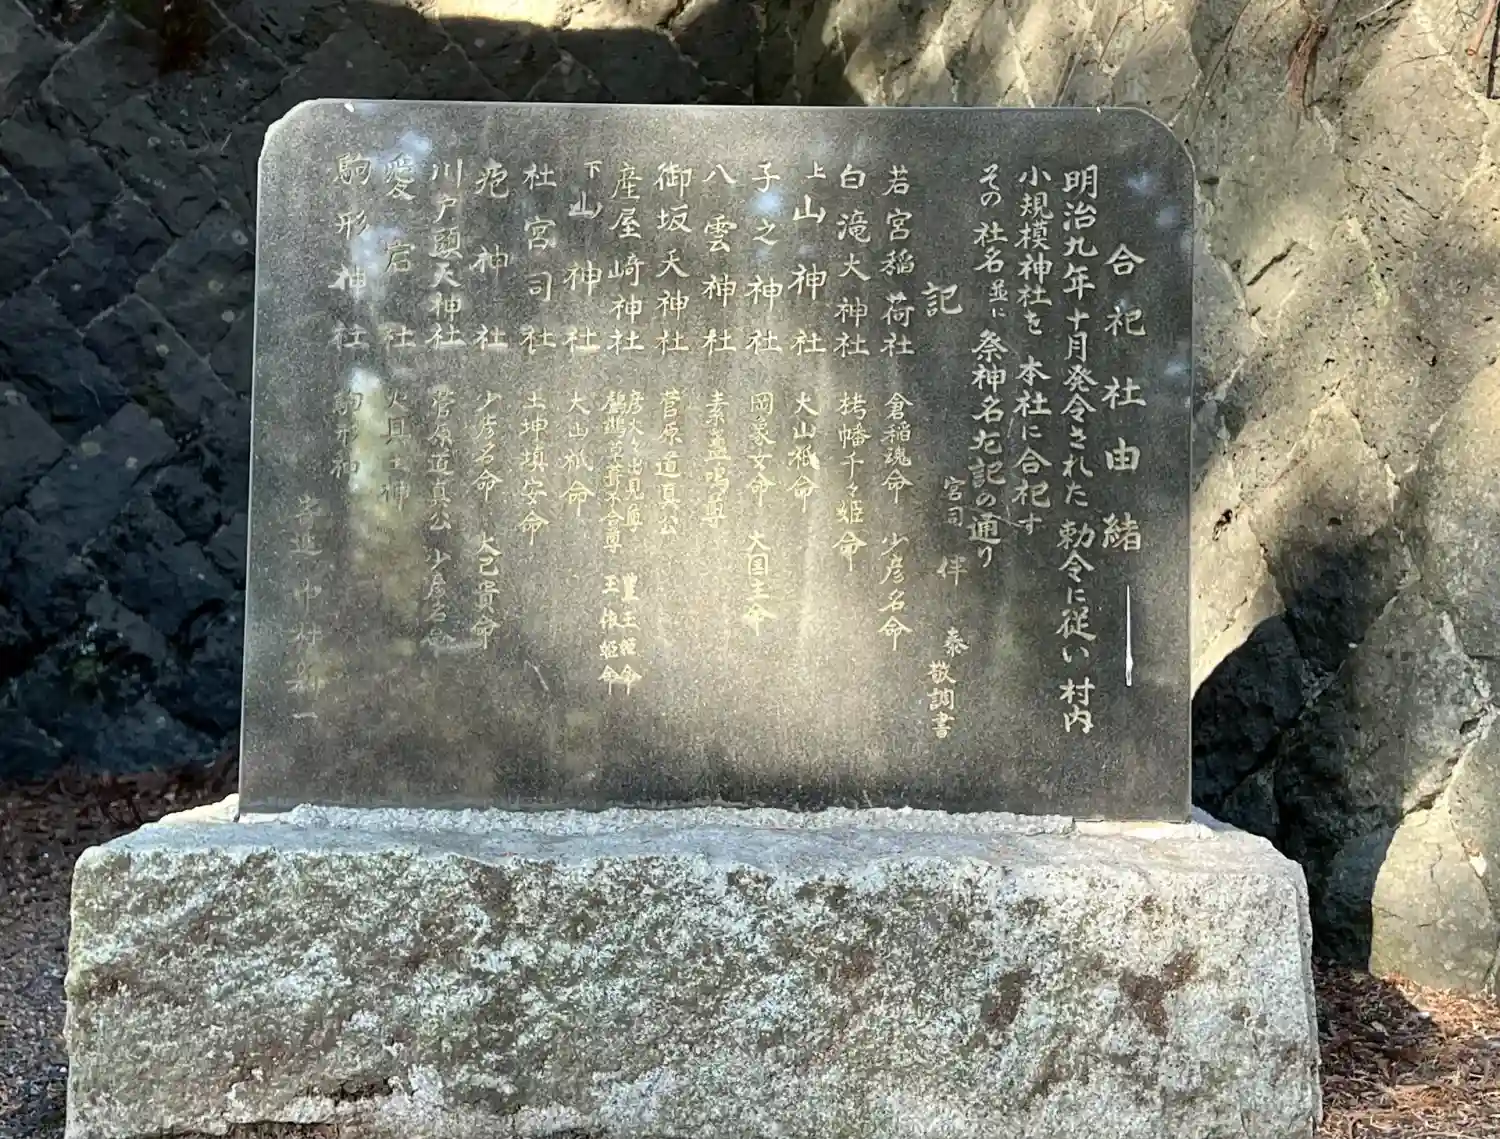 合祀社由緒
明治九年十月発令された勅令に従い村内
小規模神社を本社に合祀す
その社名並に祭神名左記の通り
宮司 伴 泰 敬調書
記
若宮稲荷社 倉稲魂命 少彦名命
白滝大神社 栲幡千々姫命
上山神社 大山祇命
子之神社 岡象女命 大国主命
八雲神社 素盞嗚尊
御坂天神社 菅原道真公
産屋崎神社 彦火々出見尊 豊玉姫命
鸕鶿草葺不合尊 玉依姫命
下山神社 大山祇命
社宮司社 土坤埴安命
疱神社 少彦名命 大己貴命
川戸頭天神社 菅原道真公 少彦名命
愛宕社 火具土神
駒形神社 駒形神
中村 一